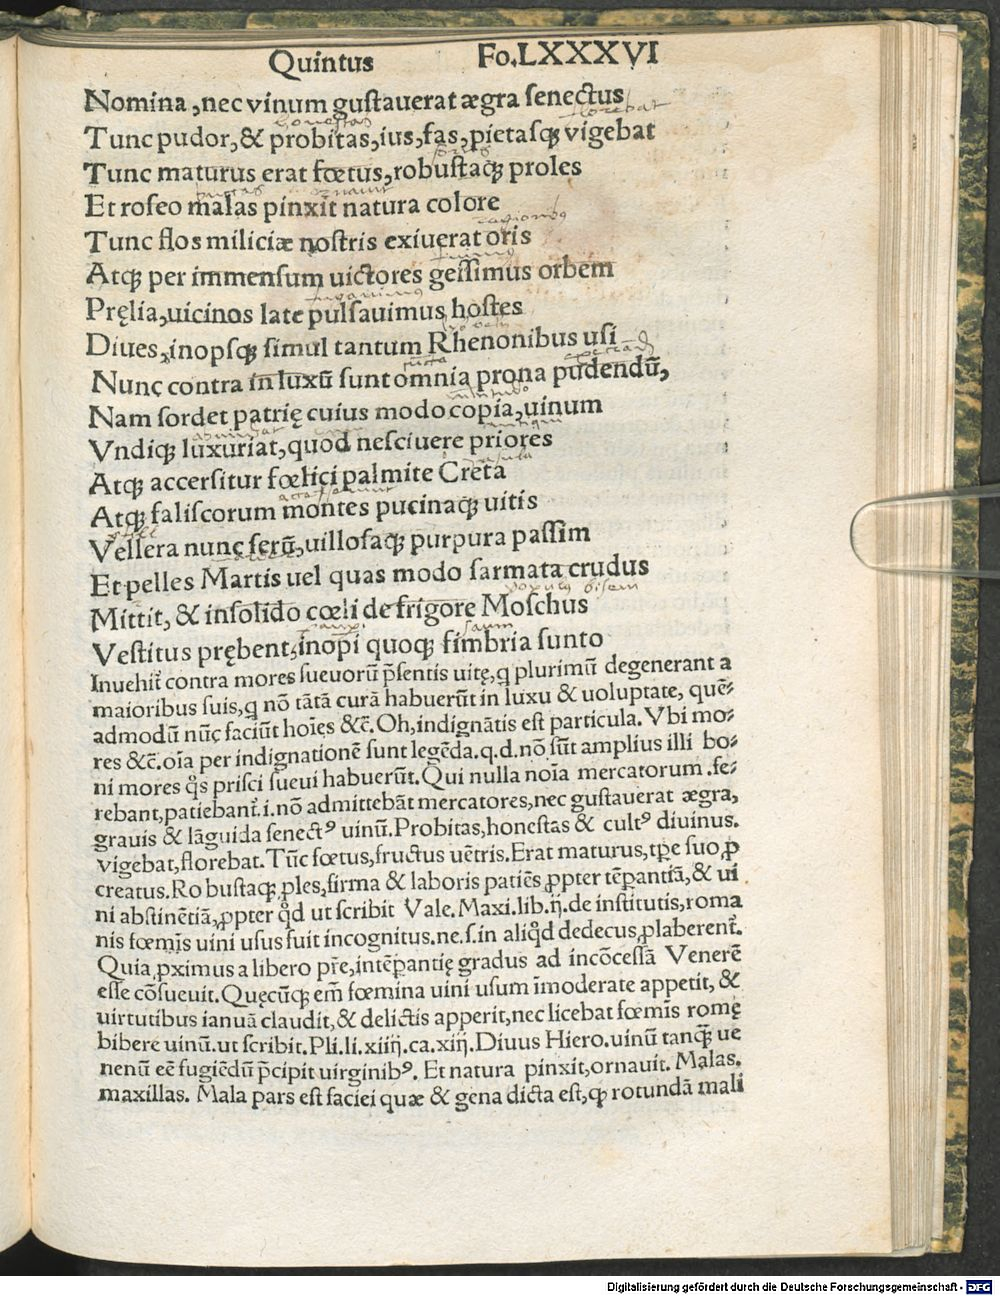 Quintus Fo.LXXXVI
Nomina, nec vinum gustauerat ægra senectus
florebat
honestas
Tunc pudor, & probitas, ius, fas, pietasqꝫ vigebat
Tunc maturus erat fœtus, robustaqꝫ proles
ornauit
Et roseo malas pinxit natura colore
Tunc flos miliciæ nostris exiuerat oris
Atqꝫ per immensum uictores gessimus orbem
fugauimus
Pręlia, uicinos late pulsauimus hostes
Diues, inopsqꝫ simul tantum Rhenonibus usi
Nunc contra in luxū sunt omnia prona pudendū,
Nam sordet patrię cuius modo copia, uinum
Vndiqꝫ luxuriat, quod nesciuere priores
insula
Atqꝫ accersitur fœlici palmite Creta
Atqꝫ faliscorum montes pucinaqꝫ uitis
Vellera nunc serū, uillosaqꝫ purpura passim
Et pelles Martis uel quas modo sarmata crudus
Mittit, & insolido cœli de frigore Moschus
Vestitus prębent, inopi quoqꝫ fimbria sunto
Inuehit̃ contra mores sueuorū p̄sentis uitę, q plurimū degenerant a
maioribus suis, q nō tātā curā habuerūt in luxu & uoluptate, quē-
admodū nūc faciūt hoīes &c̄. Oh, indignātis est particula. Vbi mo-
res &c̄. oīa per indignationē sunt legēda. q.d. nō sūt amplius illi bo-
ni mores q̊s prisci sueui habuerūt. Qui nulla noīa mercatorum .fe-
rebant, patiebant̃. i. nō admittebāt mercatores, nec gustauerat ægra,
grauis & lāguida senectꝰ uinū. Probitas, honestas & cultꝰ diuinus.
vigebat, florebat. Tūc fœtus, fructus uētris. Erat maturus, tp̄e suo, ꝓ
creatus. Robustaqꝫ ꝓles, firma & laboris patiēs ꝓpter tēꝑantiā, & ui
ni abstinētiā, ꝓpter q̊d ut scribit Vale. Maxi. lib. ij. de institutis, roma
nis fœmīs uini usus fuit incognitus. ne. s. in aliq̊d dedecus ꝓlaberent̃.
Quia ꝓximus a libero pr̄e, intēꝑantię gradus ad incōcessā Venerē
esse cōsueuit. Quęcūqꝫ em̄ fœmina uini usum īmoderate appetit, &
uirtutibus ianuā claudit, & delictis apperit, nec licebat fœmīs romę
bibere uinū. ut scribit. Pli. li. xiiij. ca. xiij. Diuus Hiero. uinū tanqꝫ̄ ue
nenū eē fugiēdū p̄cipit uirginibꝰ. Et natura pinxit, ornauit. Malas.
maxillas. Mala pars est faciei quæ & gena dicta est, qꝫ rotundā mali
Digitalisierung gefördert durch die Deutsche Forschungsgemeinschaft - DFG